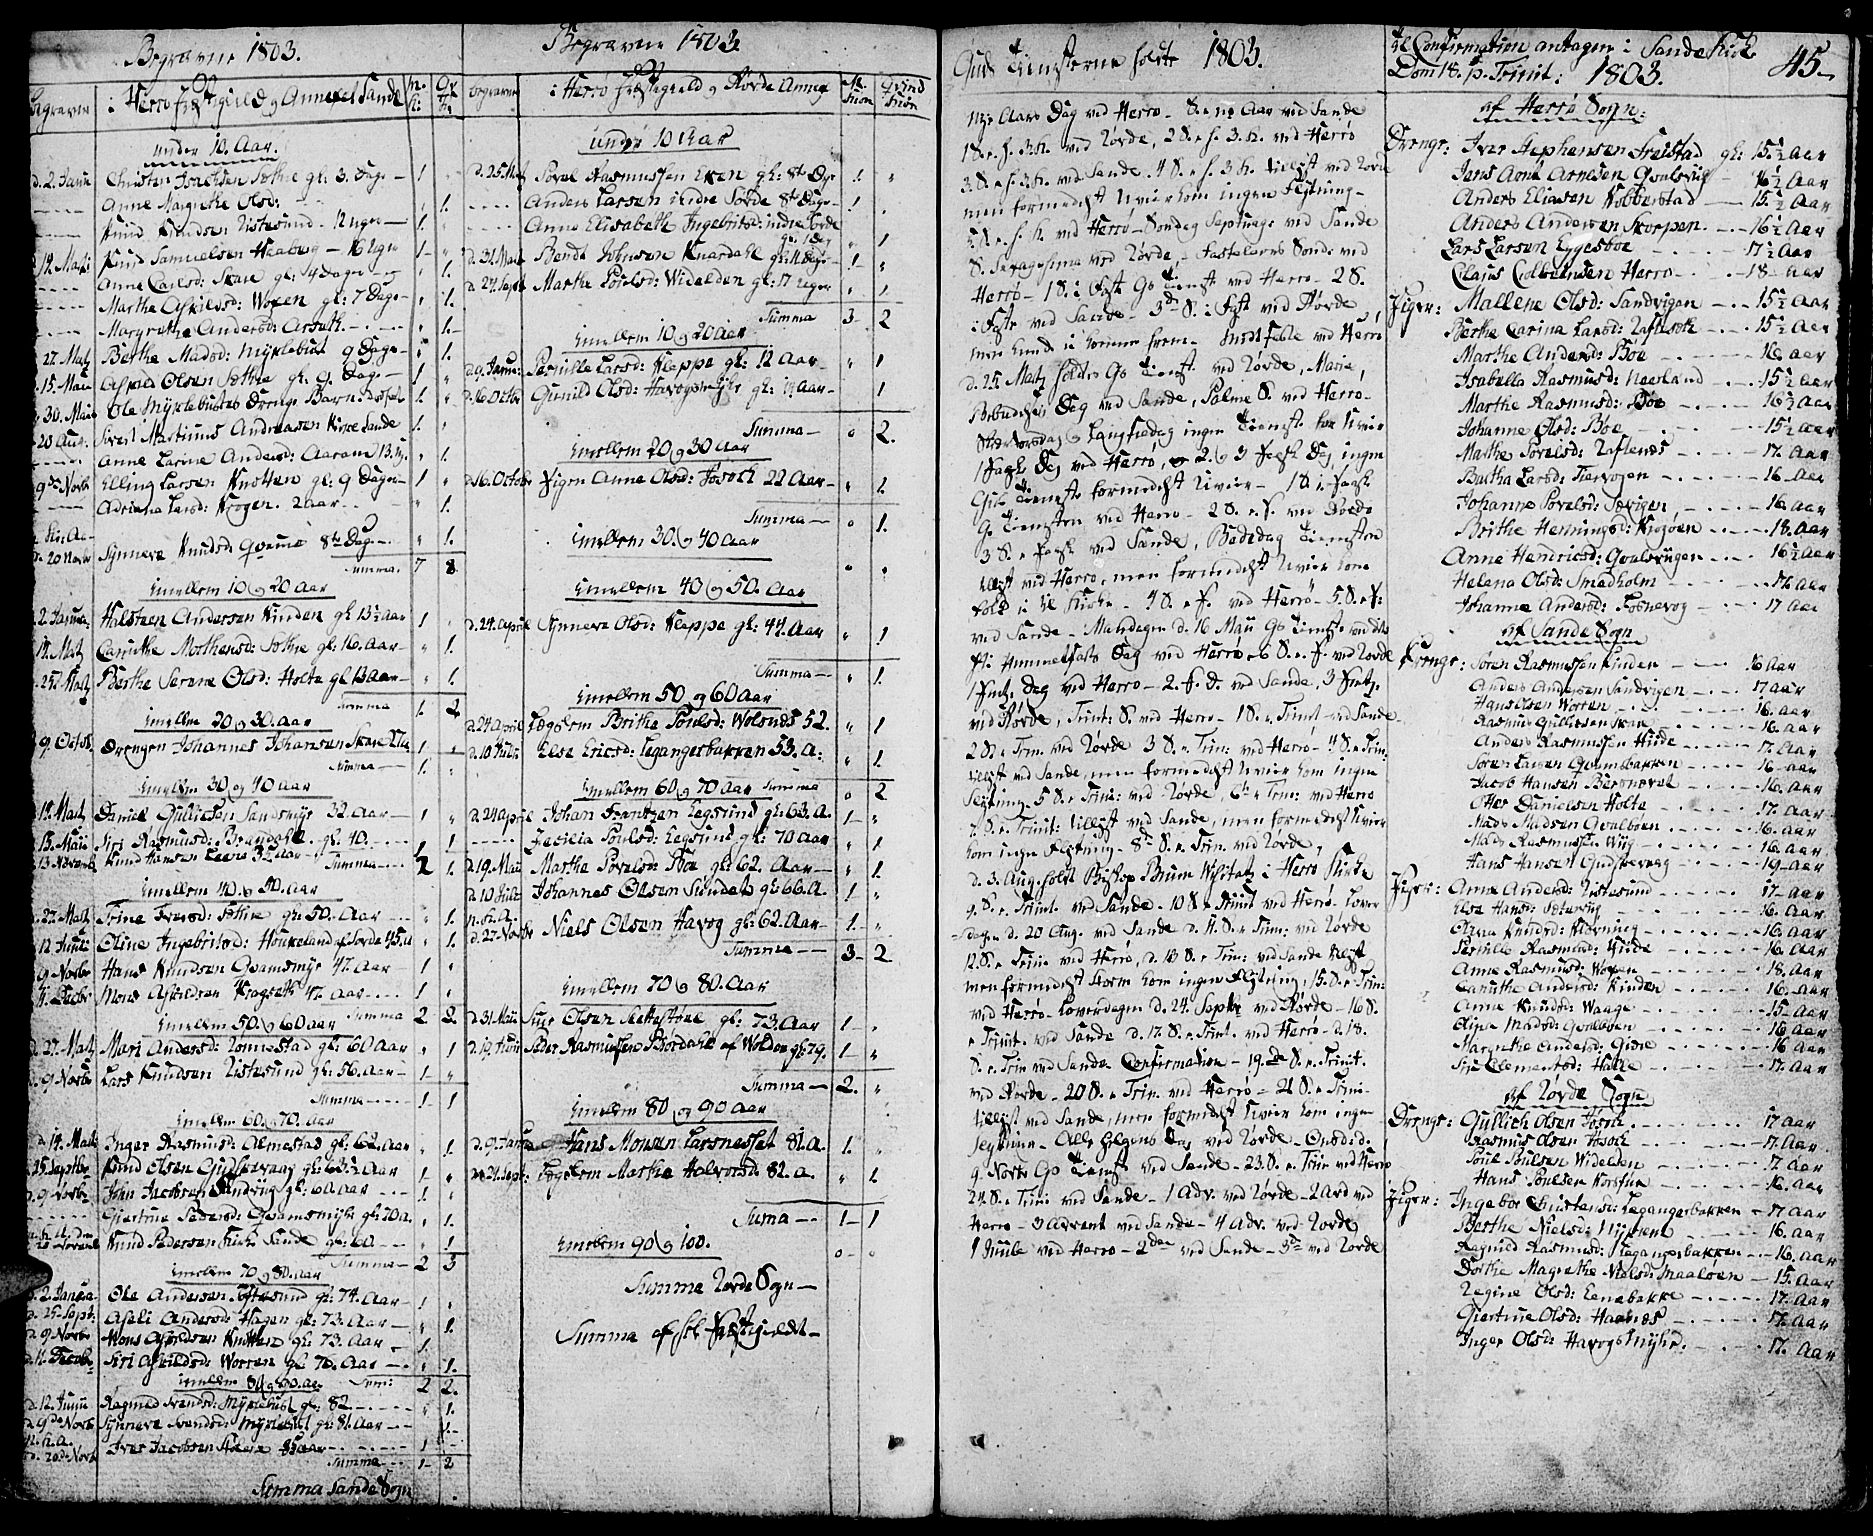 Begravne 1803.
i Herrø Præstegield og Annexet Sande
under 10. Aar.
d. 2. Janu Christen Isachsen Sæthre gl: 3. Dage — 1
Anne Margrethe Olsd: 1.
Knud Knudsen Ristesund — 12 Uger — 1
d. 12. Martz Knud Samuelsen Haaberg — 16 Uger 1
Anne Carlsd: Skare gl: 14 Dage — 1.
Marthe Askildsd: Voxen gl: 7 Dage — 1.
Margrethe Andersd: Aarseth — 1.
27. Martz Berthe Madsd: Myklebust 9 Dage — 1.
15. Maii Askild Olsen Sæthre gl: 9. Dage — 1
30. Maii Ole Myklebustes Drenge Barn 1.
20 Aug. Sivert Martinus Andreasen Kirke Sande 1.
Anne Larine Andersd: Aaram 13. 1.
9de Novb Elling Larsen Knotten gl: 9 Dage — 1
Adriana Larsd: Krogen. 2 Aar 1.
d. 20 Novb Synneva Knudsd: Qvame 8te Dage — 1.
Summa. 7 8
Imellem 10 og 20 Aar
2. Janua: Halsteen Andersen Kinden gl: 13½ Aar 1
14. Martz Carithe Mortensd: Sæthre gl: 16. Aar — 1.
25. Martz Berthe Serane Olsd: Holte gl 13 Aar — 1.
Summa 1. 2
Imellem 20 og 30. Aar
9. Octob. Drengen Johannes Johansen Skare 1
Summa — 1.
Imellem 30 og 40 Aar
14. Martz Daniel Gullicksen Sandsmyr 32. Aar — 1
15. Maii Siri Rasmusd: Brandahl. gl: 40. 1
13 Novemb Knud Hansen Leere 32 Aar
Summa — 2 1.
Imellem 40. og 50. Aar
27. Martz Trine Iversd: Sæthre gl: 50. Aar 1.
12 Junii Oline Ingebritsd: Houkeland af Sorde 45. 1.
9 Novbr Hans Knudsen Qvamsmyr 47. Aar 1
4. Decbr Mons Askildsen Kragseth 47. Aar 1
Summa 2 2.
Imellem 50. og 60 Aar
d. 27. Martz Mari Andersd: Rønnestad gl: 60 Aar 1
9 Novbr Lars Knudsen Ristesund gl: 56. Aar — 1
Summa — 1 1
Imellem 60. 70. Aar
d. 14. Martz Inger Rasmusd: Almestad gl: 62 Aar 1
25. Septbr Knud Olsen Gudskevaag gl: 63½ Aar 1
9. Novbr John Jacobsen Sandvig gl: 60. Aar 1
Giertrue Pedersd: Qvamsmyhr gl: 70 a. 1.
20 Novemb Knud Pedersen Kirke Sande gl: 60 1
Summa — 2 3
Imellem 70 og 80. Aar
d. 2. Janua Ole Andersen Ristesund gl: 74. Aar — 1
d. 25. Sept: Aseli Andersd: Hagen gl: 73. Aar — 1.
d. 9 Novb Mons Askildsen Knotten gl: 73. Aar 1.
d. 11. Decbr Siri Askildsd: Worren gl 70. Aar 1.
Summ: 2 2.
Imellem 80 og 90. Aar
d. 12. Junii Ragnild Svendsd: Myklebust gl: 82 1.
d. 9de Novb Synneve Svendsd: Myklebust gl: 81. Aar 1.
d. 20de Novb Iver Jacobsen 1
Summa — 1 2
Summa Sande Sogn
Begravne 1803
i Herrø Præstegield og Rovde Annex
under 10 Aar
d. 25. Mart Povel Rasmussen Eken gl: 8te Dge 1.
Anders Larsen indre Sorde 8te Dage — 1.
Anne Elisabeth Ingebritsd: indre Sorde gl: 1 Dag 1
d. 31. Maii Bendt Johnsen Knardahl gl: 11 Dage 1
d. 24. Septr Marthe Poulsd: Widelden gl: 17 Uger 1
Summa 3 2
Imellem 10 og 20 Aar
d. 9. Janu: Pernille Larsd: Kleppe gl: 12 Aar 1
d. 16. Octbr Gunild Olsd: Havogsmyhr gl: 19 Aar — 1
Summa — 0 2.
Imellem 20 og 30 Aar
d. 16. October Pigen Anne Olsd: Jøsok 22 Aar — 1.
Summa — 0 1.
Imellem 30. og 40 Aar
Imellem 40 og 50. Aar
d. 24. april Synneva Olsd: Kleppe gl: 44. Aar 1
Summa — 1.
Imellem 50 og 60 Aar
d. 24 april Lægdslem Brithe Poulsd: Wolsnes 52. 1
d. 10. Julii Else Ericsd: Legangerbakken 53. A: 1.
Imellem 60 og 70 Aar Summa 0 2
d. 24 april Johan Frantzen Eegsund gl: 63. A. 1
Zecilia Poulsd: Eegsund gl: 70 Aar 1
d. 19. Maii Marthe Povelsd: Bøe gl: 62. Aar — 1
d. 10 Julii Johannes Olsen Sundet gl: 66. A. 1
d. 27. Novbr Niels Olsen Havog gl: 62. Aar — 1.
Summa — 3 2
Imellem 70 og 80. Aar
d. 31. Maii Siur Olsen gl: 73. Aar 1
d. 19. Junii Peder Rasmussen Bjørdahl af Wolden gl: 79. 1
Summa — 2.
Imellem 80 og 90 Aar
d. 9. Janua Hans Monsen Larsnesset 81. a. 1.
d. 24. Sept: Lægdslem Marthe Halvorsd. 82. a. 1
Suma — 1 1
Imellem 90 og 100. 0
Summa Rovde Sogn —
Summa af Præstegieldet —
Guds Tienesterne holdte 1803.
Nye Aars Dag ved Herrø — S. e. ny Aar ved Sande
1 S. e. h. 3 K. ved Rovde, 2 S. e. h. 3. K. ved Herrø
3. S. e. h. 3 K. ved Sande. 4 S. e h. 3 K. tillyst ved Rovde
men formedelst Uveir kom ingen Flytning —
5 S. e. h. K. ved Herrø — Søndag Septuages ved Sande
S. Sexagesima ved Rovde, — Fastelavns Sønd: ved
Herrø — 1 S. i Fast Gs Tienest ved Herrø — 2 S.
i Faste ved Sande — 3de S. i Fast ved Rovde —
men kunde ei komme frem — Midtfaste ved Herrø
d. 25 Martz holdtes Gs Tienest ved Rovde, Mariæ
Bebudelses Dag ved Sande, Palme S. ved Herrø —
Skiærtorsdag og Langfredag ingen Tieneste for Uveir
1 Paaske Dag ved Herrø, 2. og 3 Paaske Dag ingen
Guds Tieneste formedelst Uveir — 1 S. e. Paaske
Gs Tienesten ved Herrø — 2 S. e. P. ved Rovde
3 S. e Paaske ved Sande, Bededag Tienesten
tillyst ved Herrø, men formedelst Uveir kom
Folk ei til Kirke — 4 S. e P. ved Herrø — 5. S. e P:
ved Sande — Mandagen d. 16 Maii Gs Tieneste
Christi Himmelfarts Dag ved Herrø — 6 S. e P. ved Rovde
1 Pintz. Dag ved Herrø — 2. P. D. ved Sande, 3 Pintz.
ved Rovde, Trinit: S. ved Herrø — 1 S. e Trinit ved Sande
2 S. e Trin. ved Rovde 3 S. e Trin: ved Herrø — 4 S. e Trin:
tillyst ved Sande, men formedelst Uveir kom ingen
Flytning — 5 S. e Trinit: ved Rovde, 6 S. e Trin: ved Herrø
7. S. e Trinit: tillyst ved Sande, men formedelst Uveir
kom ingen Flytning — 8de S. e Trin. ved Rovde,
d. 3. Aug. holdt Biskop Bruun Visitatz i Herrø Kirke
9. S. e. Trinit. ved Sande — 10 S. e Trinit ved Herrø — Løver
dagen d. 20 Aug. ved Sande d. 11. S. e Trin: ved Rovde
12. S. e Trin: ved Herrø, d. 13 S. e Trin: ved Sande tillyst
men formedelst Storm kom ingen Flytning, 15. S. e Trin:
ved Herrø — Løverdagen d. 24. Septbr ved Rovde — 16 S.
e Trinit. ved Sande d. 17. S. e Trinit. ved Herrø — d. 18.
S. e Trin ved Sande Confirmation — 19de S. e Trinit.
ved Rovde — 20 S. e Trin. ved Herrø — 21 S. e Trini.
tillyst ved Sande, men formedelst Uveir kom ingen
Flytning — Alle Helgens Dag ved Rovde — Onsd: d.
9. Novbr Gs Tienest ved Sande — 23. S. e. Trin ved Herrø
24. S. e Trin: ved Sande — 1 Adv. ved Rovde — 2 Adv ved
Herrø — 3 Advent ved Sande — 4 Adv. ved Rovde
1 Juule ved Herrø — 2den ved Sande — 3de ved Rovde
til Confirmation antagen i Sande Kirke
Dom 18. p. Trinit: 1803.
45
af Herrø Sogn:
Drenge: Iver Stephensen Frøistad gl: 15½ Aar
Jens Arne Arnesen Qvalsvig — 16½ Aar
Anders Eliasen Kobberstad — 15½ Aar
Anders Andersen Skorpen — 16½ Aar
Lars Larsen Eggesbøe — 17½ Aar
Claus Colbeensen Herrø — 18 Aar
Piger: Mallene Olsd: Sandvigen — 15½ Aar
Berthe Carina Larsd: Raftseth — 15½ Aar
Marthe Andersd: Bøe — 16 Aar
Isabella Rasmusd: Nærland — 15½ Aar
Marthe Rasmusd: Bøe — 16½ Aar
Johanne Olsd: Bøe — 15½ Aar
Marthe Povelsd: Raftenes — 17 Aar
Bertha Larsd: Tiørvogen — 16 Aar
Johanne Povelsd: Sævigen — 16 Aar
Brithe Henningsd: Krogøen — 18. Aar
Anne Hendricsd: Qvalsvigen — 16½ Aar
Helena Olsd: Smaaholm — 17. Aar
Johanne Andersd: Fosnevog — 17 Aar
af Sande Sogn
Drenge: Søren Rasmussen Kinden — 16 Aar
Anders Andersen Sandvigen — 17 Aar
Hans Olsen Worren — 16. Aar
Rasmus Gullicksen Skare — 16. Aar
Anders Rasmussen Hiide — 17. Aar
Søren Larsen Qvamsbakken — 16 Aar
Jacob Hansen — 16. Aar
Otter Danielsen Holte — 17. Aar
Mads Madsen Qvalbøen — 16. Aar
Mads Rasmussen Wiig — 16 Aar
Hans Hansen Gudskevaag — 19 Aar
Piger: Anne Andersd: Ristesund — 17 Aar
Else Hansd: Sætervig — 16. Aar
Olava Knudsd: Kløvning — 16. Aar
Pernille Rasmusd: Hiide — 16. Aar
Anne Rasmusd: Voxen — 18. Aar
Carithe Andersd: Kinden — 16. Aar
Anne Knudsd: Waage — 15. Aar
Oline Madsd: Qvalbøen — 16 Aar
Margrethe Andersd: Gidre — 16 Aar
Siri Clementsd: Halle — 17. Aar
af Rovde Sogn
Drenge: Gullich Olsen Jøsok — 17 Aar
Rasmus Olsen Jøsock — 17. Aar
Poul Poulsen Widelden — 17. Aar
Hans Poulsen Korsfur — 16. Aar
Piger: Ingebor Christensd: Legangerbakken — 17 Aar
Berthe Nielsd: Nykrem — 16. Aar
Ragnild Rasmusd: Legangerbakken — 16. Aar
Dorthe Magrethe Nielsd: Maaløen — 15. Aar
Regine Olsd: Eenebakke — 17. Aar
Giertrue Olsd: Haanes — 17. Aar
Inger Olsd: Havogs Myhr. — 17. Aar